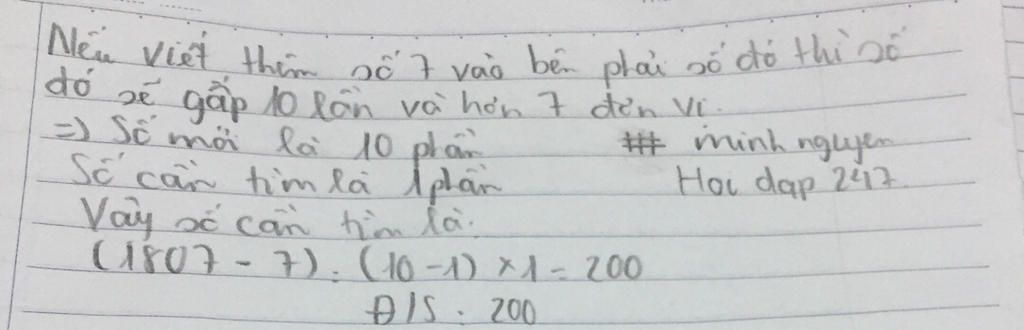 Nếu viết thêm số 7 vào bên phải số đó thì số
đó sẽ gấp 10 lần và hơn 7 đơn vị.
=) Số mới là 10 phần
### minh nguyen
Số cần tìm là 1 phần
Hoi dap 247
Vậy số cần tìm là:
(1807 - 7) : (10 - 1) x 1 = 200
Đ/S : 200